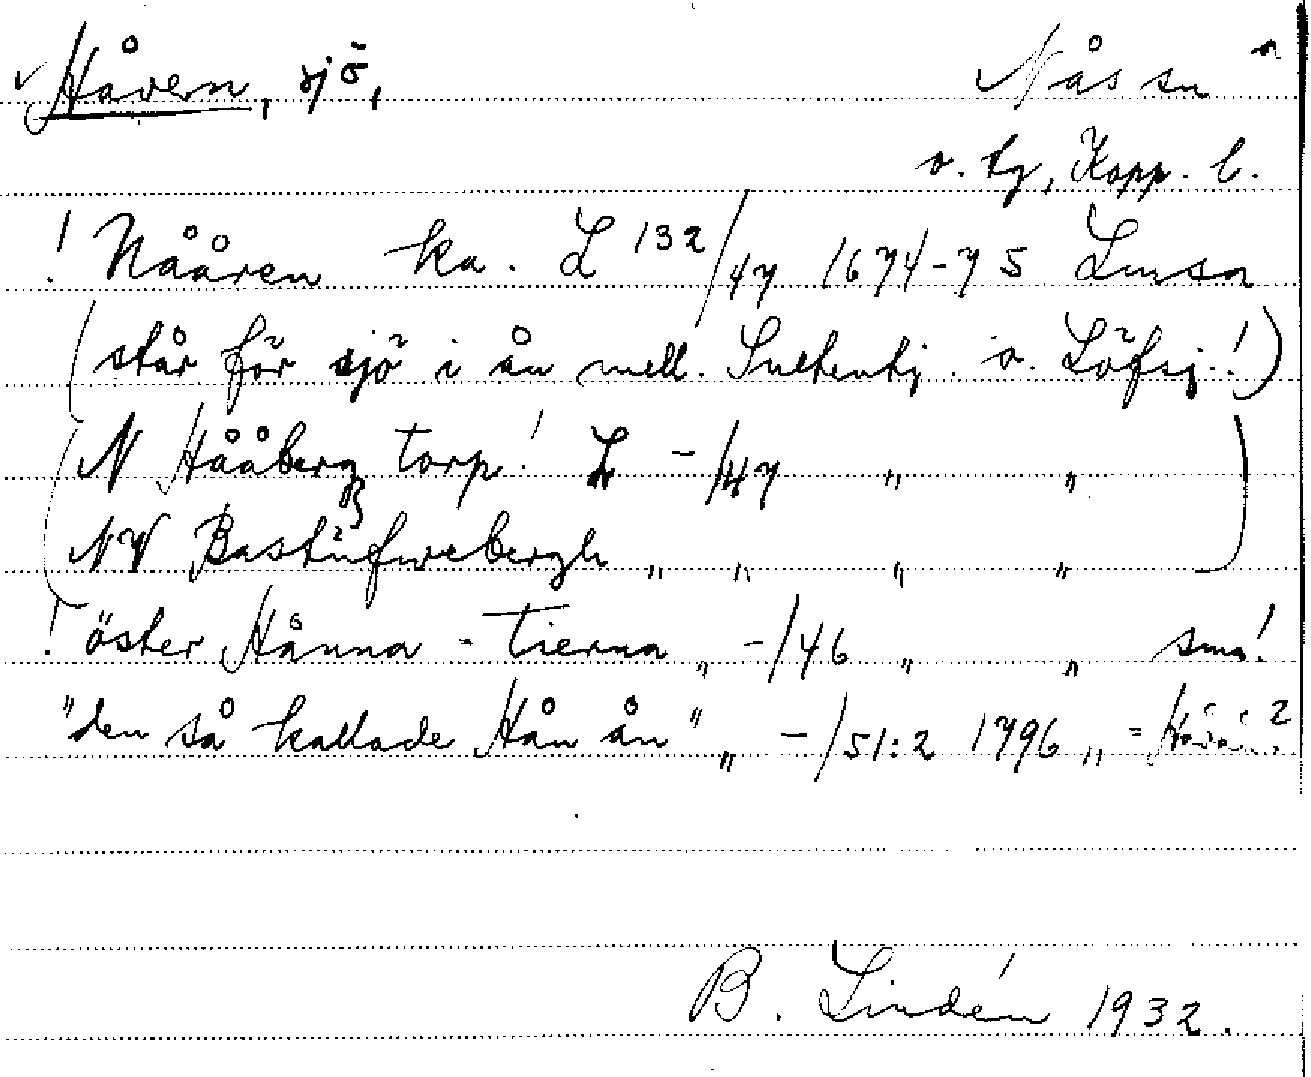 Håven, sjö, Nås sn
v. bg, Kopp. l.
! Nååren ka. L 132/47 1674-75 Lmsa
(står för sjö i ån mell. o. Löfsj.!)
(N Hååberg torp! L -/47 " "
NV Bastufwebergh " " " ")
! öster Hånna - Tierna " -/46 " " små!
"den så kallade Hån ån" " -/51:2 1796 " =
B. Lindén 1932.